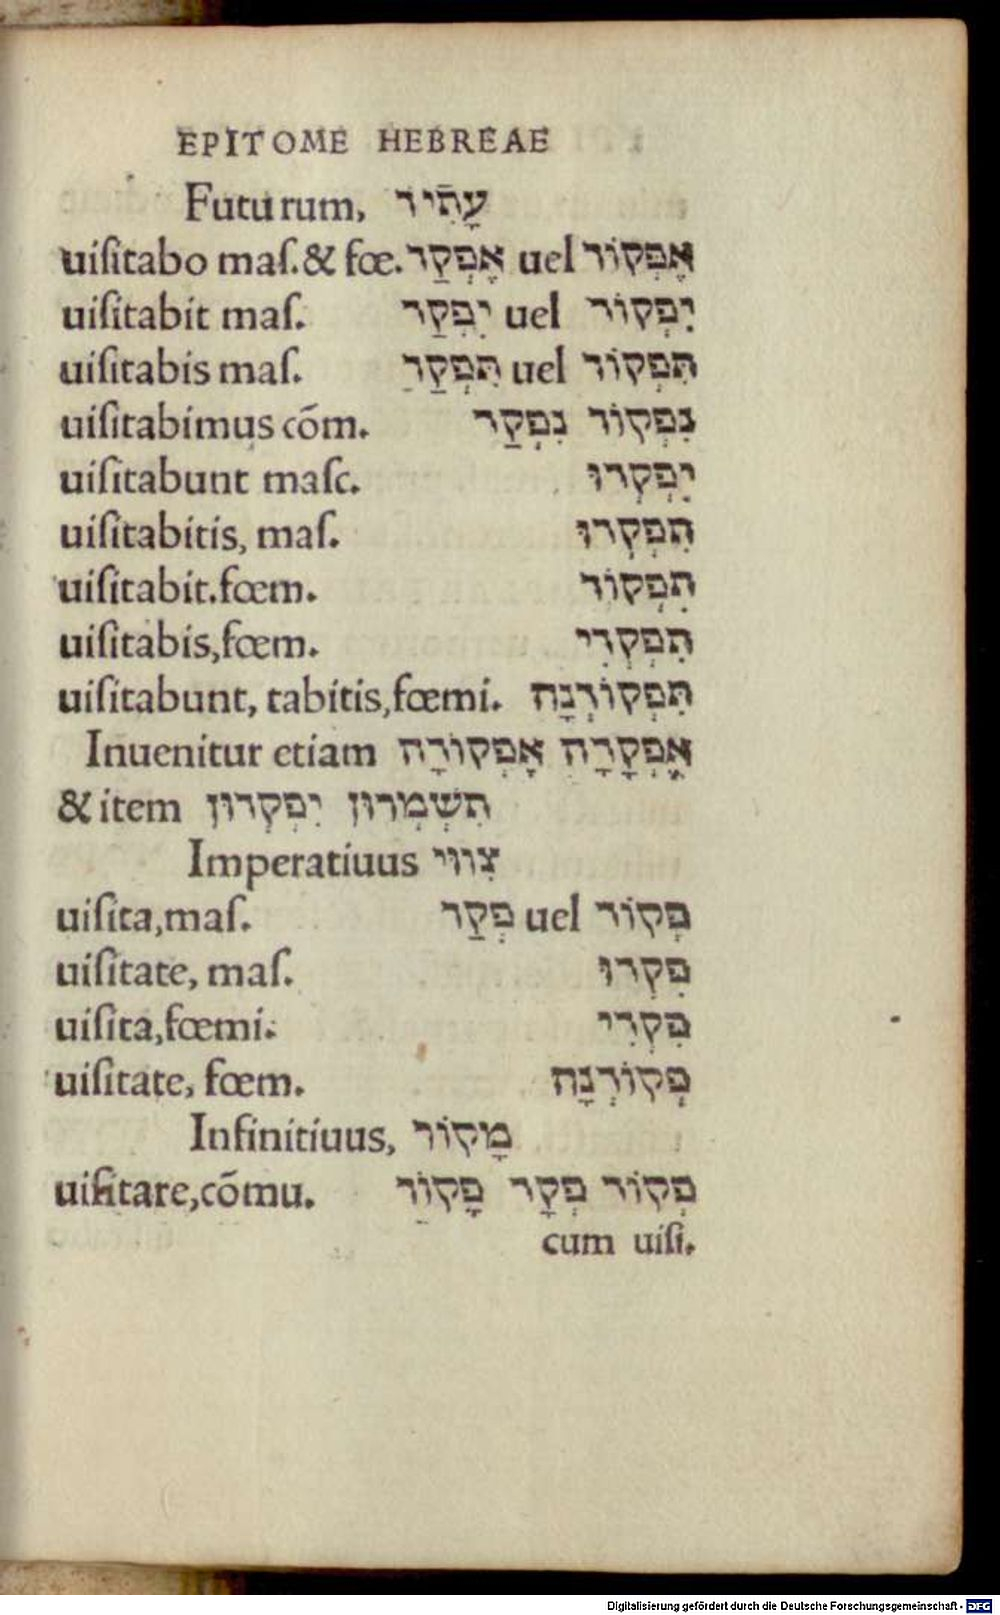 EPITOME HEBREAE
Futurum, עָתִיד
uiſitabo maſ.& fœ. אֶפְקַד uel אֶפְקוֹד
uiſitabit maſ. יִפְקַד uel יִפְקוֹד
uiſitabis maſ. תִּפְקַד uel תִּפְקוֹד
uiſitabimus cõm. נִפְקַד נִפְקוֹד
uiſitabunt maſc. יִפְקְדוּ
uiſitabitis, maſ. תִּפְקְדוּ
uiſitabit.fœm. תִּפְקוֹד
uiſitabis,fœm. תִּפְקְדִי
uiſitabunt, tabitis,fœmi. תִּפְקוֹדְנָה
Inuenitur etiam אֶפְקָדָה אֶפְקוֹדָה
& item תִשְׁמְרוּן יִפְקְדוּן
Imperatiuus צִוּוּי
uiſita,maſ. פְּקַד uel פְּקוֹד
uiſitate, maſ. פִּקְדוּ
uiſita,fœmi. פִּקְדִי
uiſitate, fœm. פְּקוֹדְנָה
Infinitiuus, מָקוֹר
uiſitare,cõmu. פָּקוֹד פְּקָד פְּקוֹד
cum uiſi.
Digitalisierung gefördert durch die Deutsche Forschungsgemeinschaft - DFG